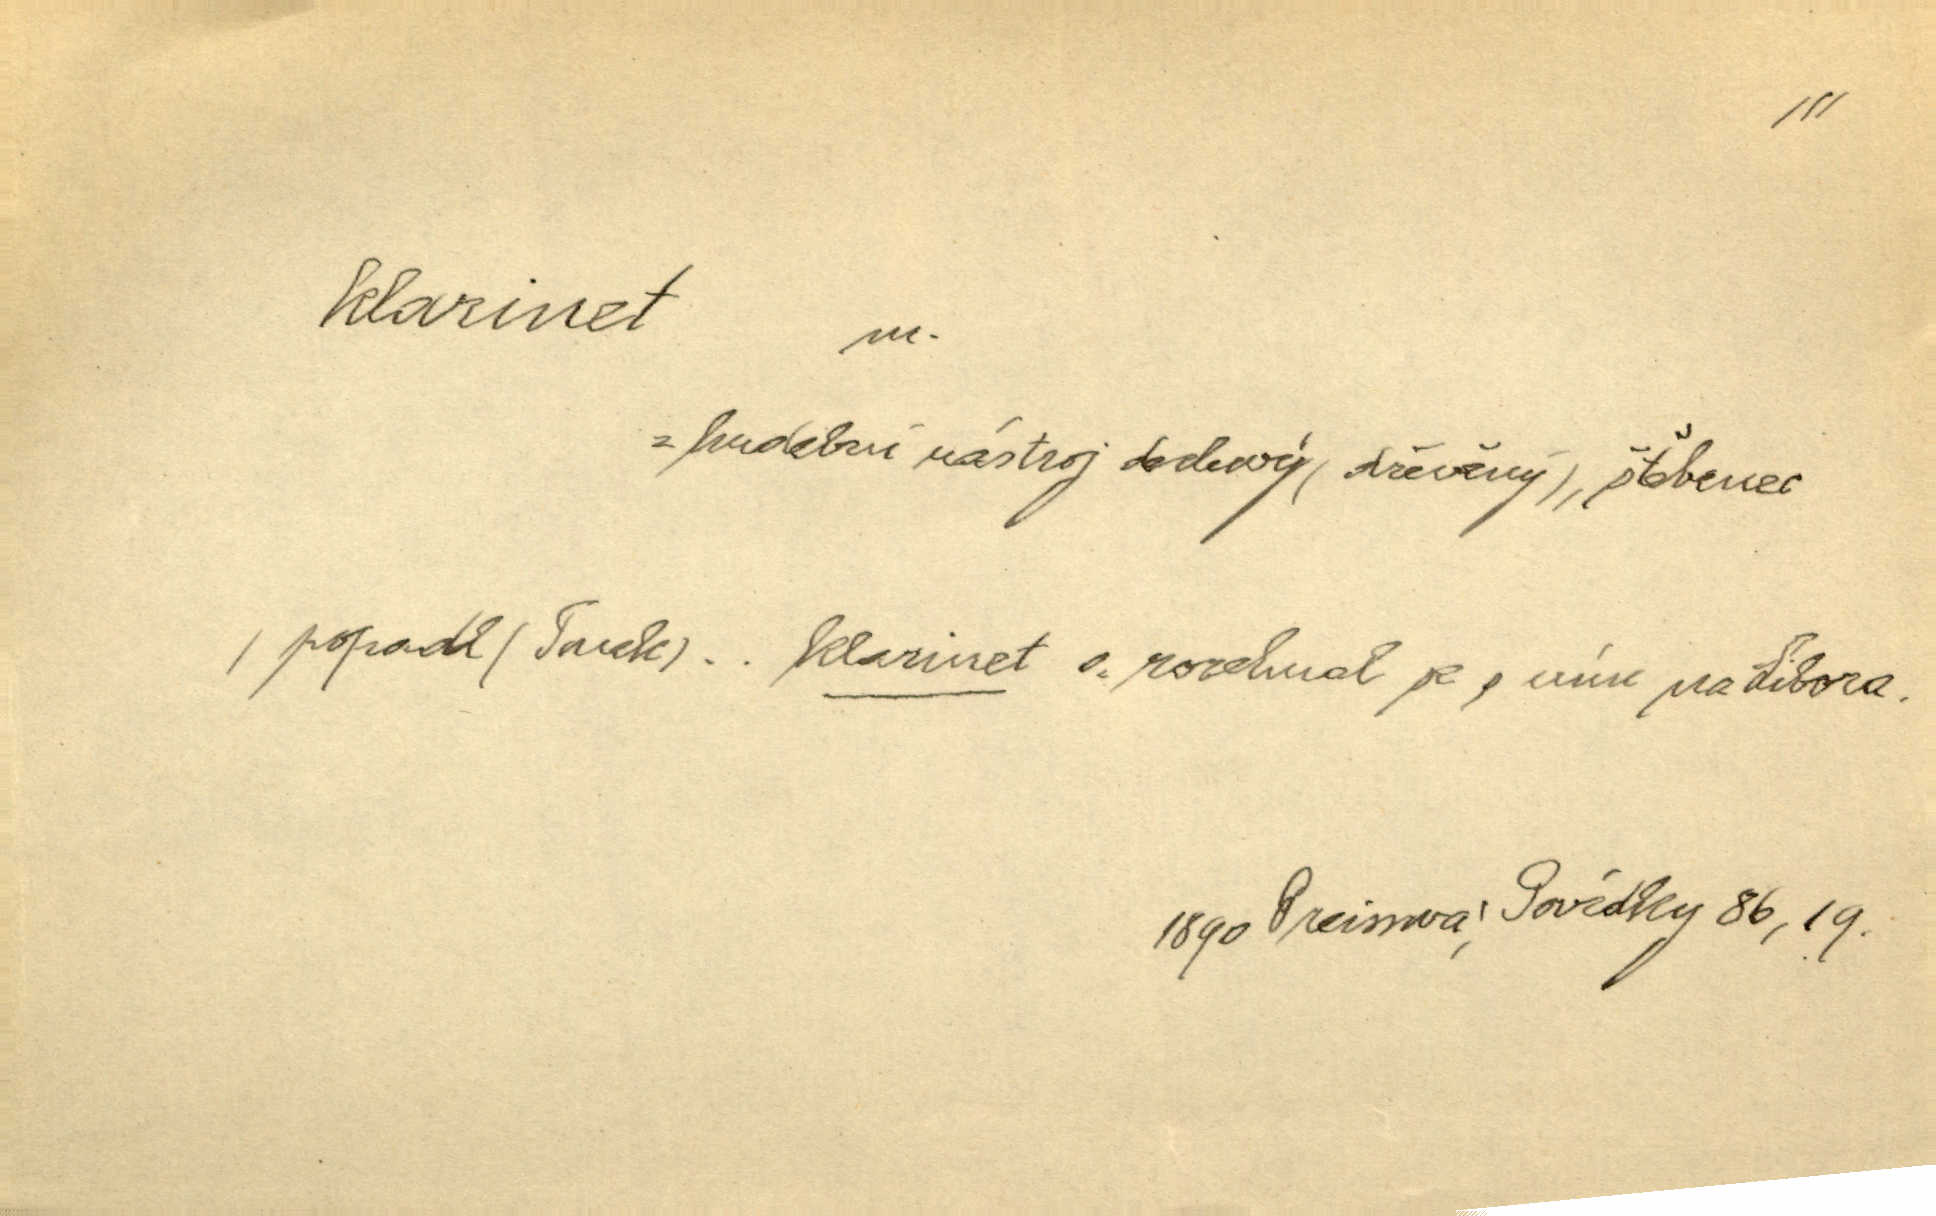 111
klarinet m.
= hudební nástroj dechový (dřevěný), štěbenec
/ popadl (Tuček) . . klarinet a rozehnal se s ním na Libora.
1890 Preissová, Povídky 86, 19.